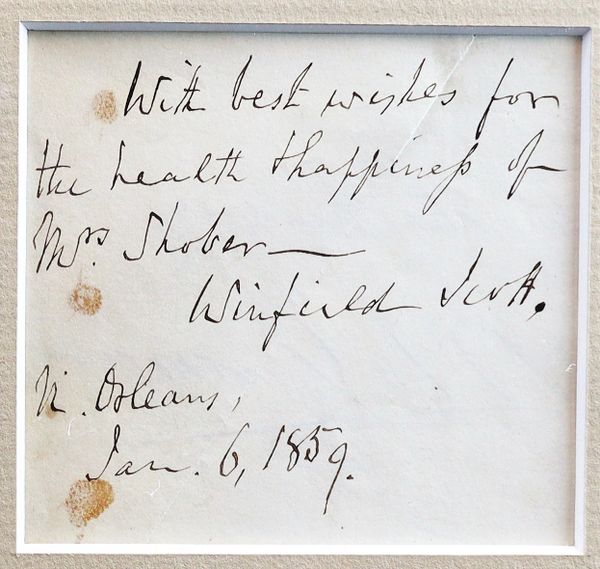 With best wishes for
the health & happiness of
Mrs. Shober—
Winfield Scott.
N. Orleans,
Jan. 6, 1859.